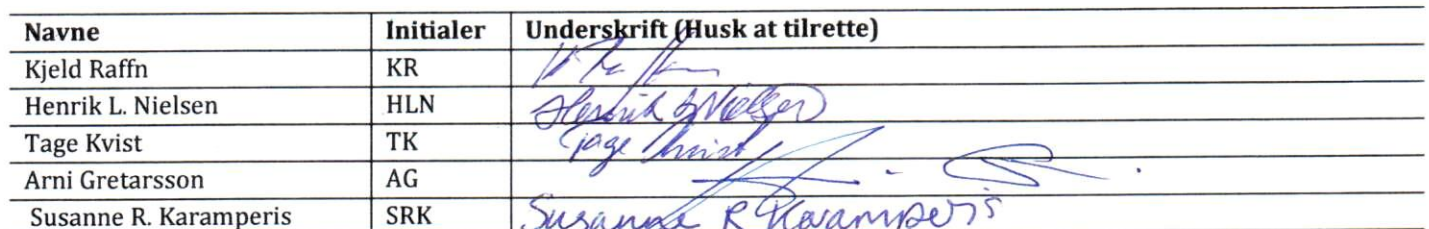 Navne Initialer Underskrift (Husk at tilrette)
Kjeld Raffn KR
Henrik L. Nielsen HLN Henrik L Nielsen
Tage Kvist TK Tage Kvist
Arni Gretarsson AG
Susanne R. Karamperis SRK Susanne R Karamperis